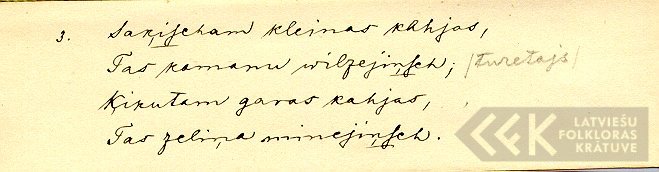 3. Saķischam kleinas kahjas,
Tas kamanu wilzejiņsch; /turetajs/
Ķikutam garas kahjas,
Tas zeliņa minejiņsch.
LATVIEŠU
FOLKLORAS
KRĀTUVE